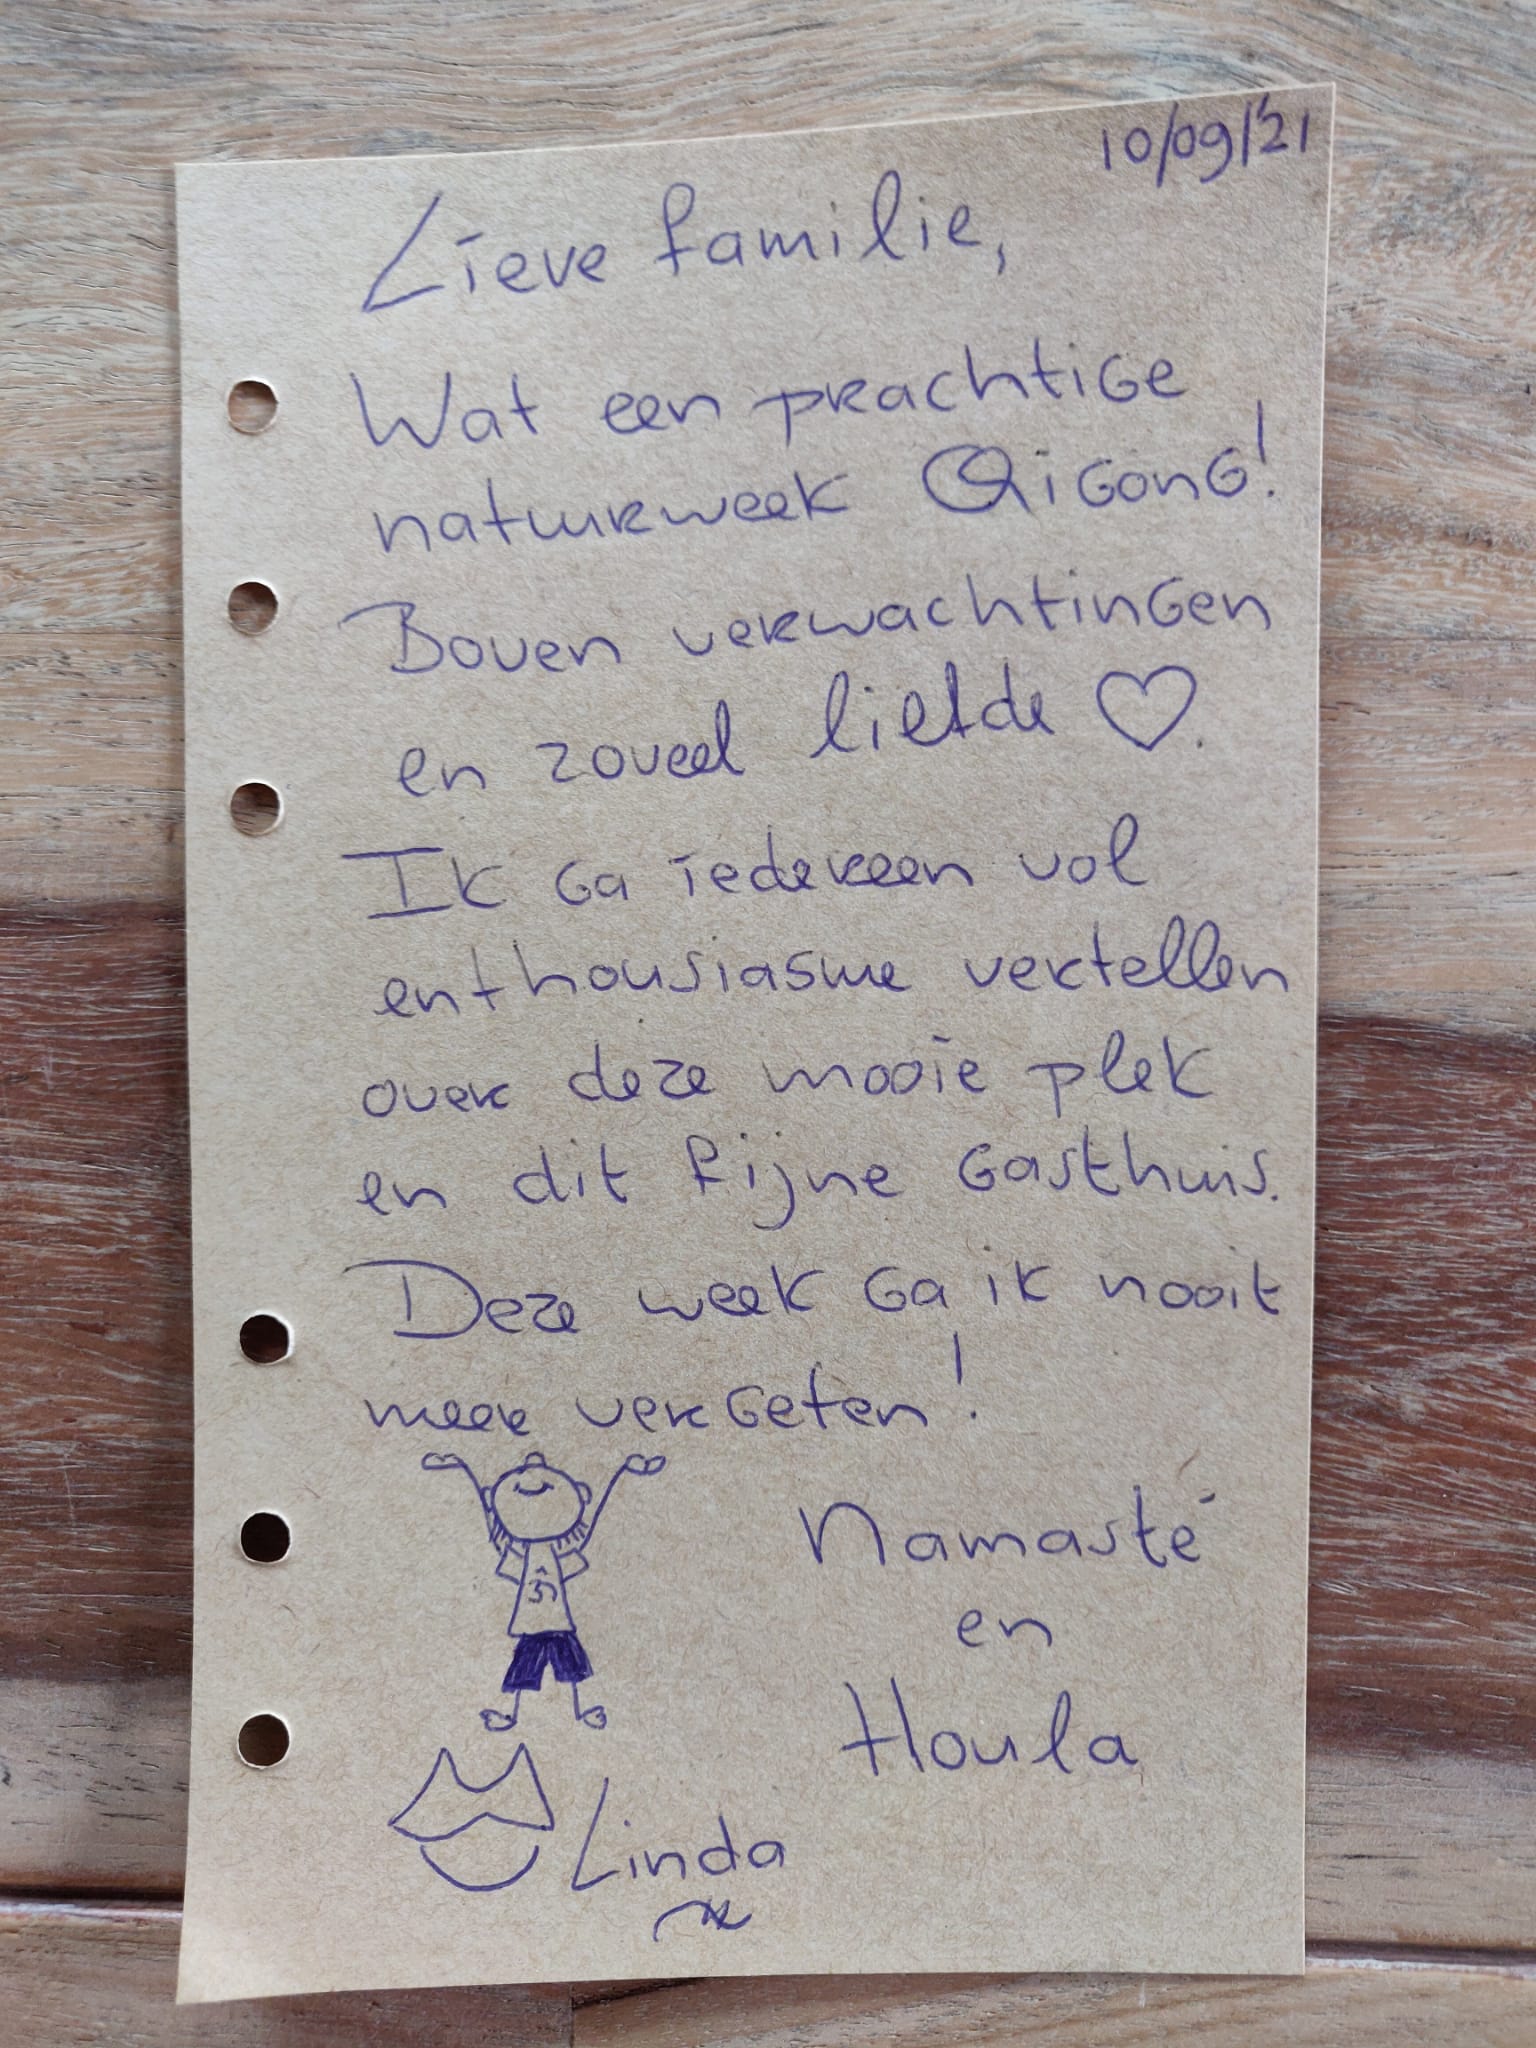 10/09/'21
Lieve familie,
Wat een prachtige
natuurweek QiGong!
Boven verwachtingen
en zoveel liefde ♡.
Ik ga iedereen vol
enthousiasme vertellen
over deze mooie plek
en dit fijne Gasthuis.
Deze week ga ik nooit
meer vergeten!
Namasté
en
Houla
Linda
x